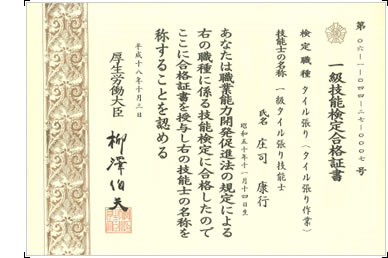 第〇六-一-〇四四-二七-〇〇〇七号
一級技能検定合格証書
検定職種 タイル張り(タイル張り作業)
技能士の名称 一級タイル張り技能士
氏名 庄司 康行
昭和五十年十一月十四日生
あなたは職業能力開発促進法の規定による
右の職種に係る技能検定に合格したので
ここに合格証書を授与し右の技能士の名称を
称することを認める
平成十八年十月二日
厚生労働大臣
柳澤伯夫